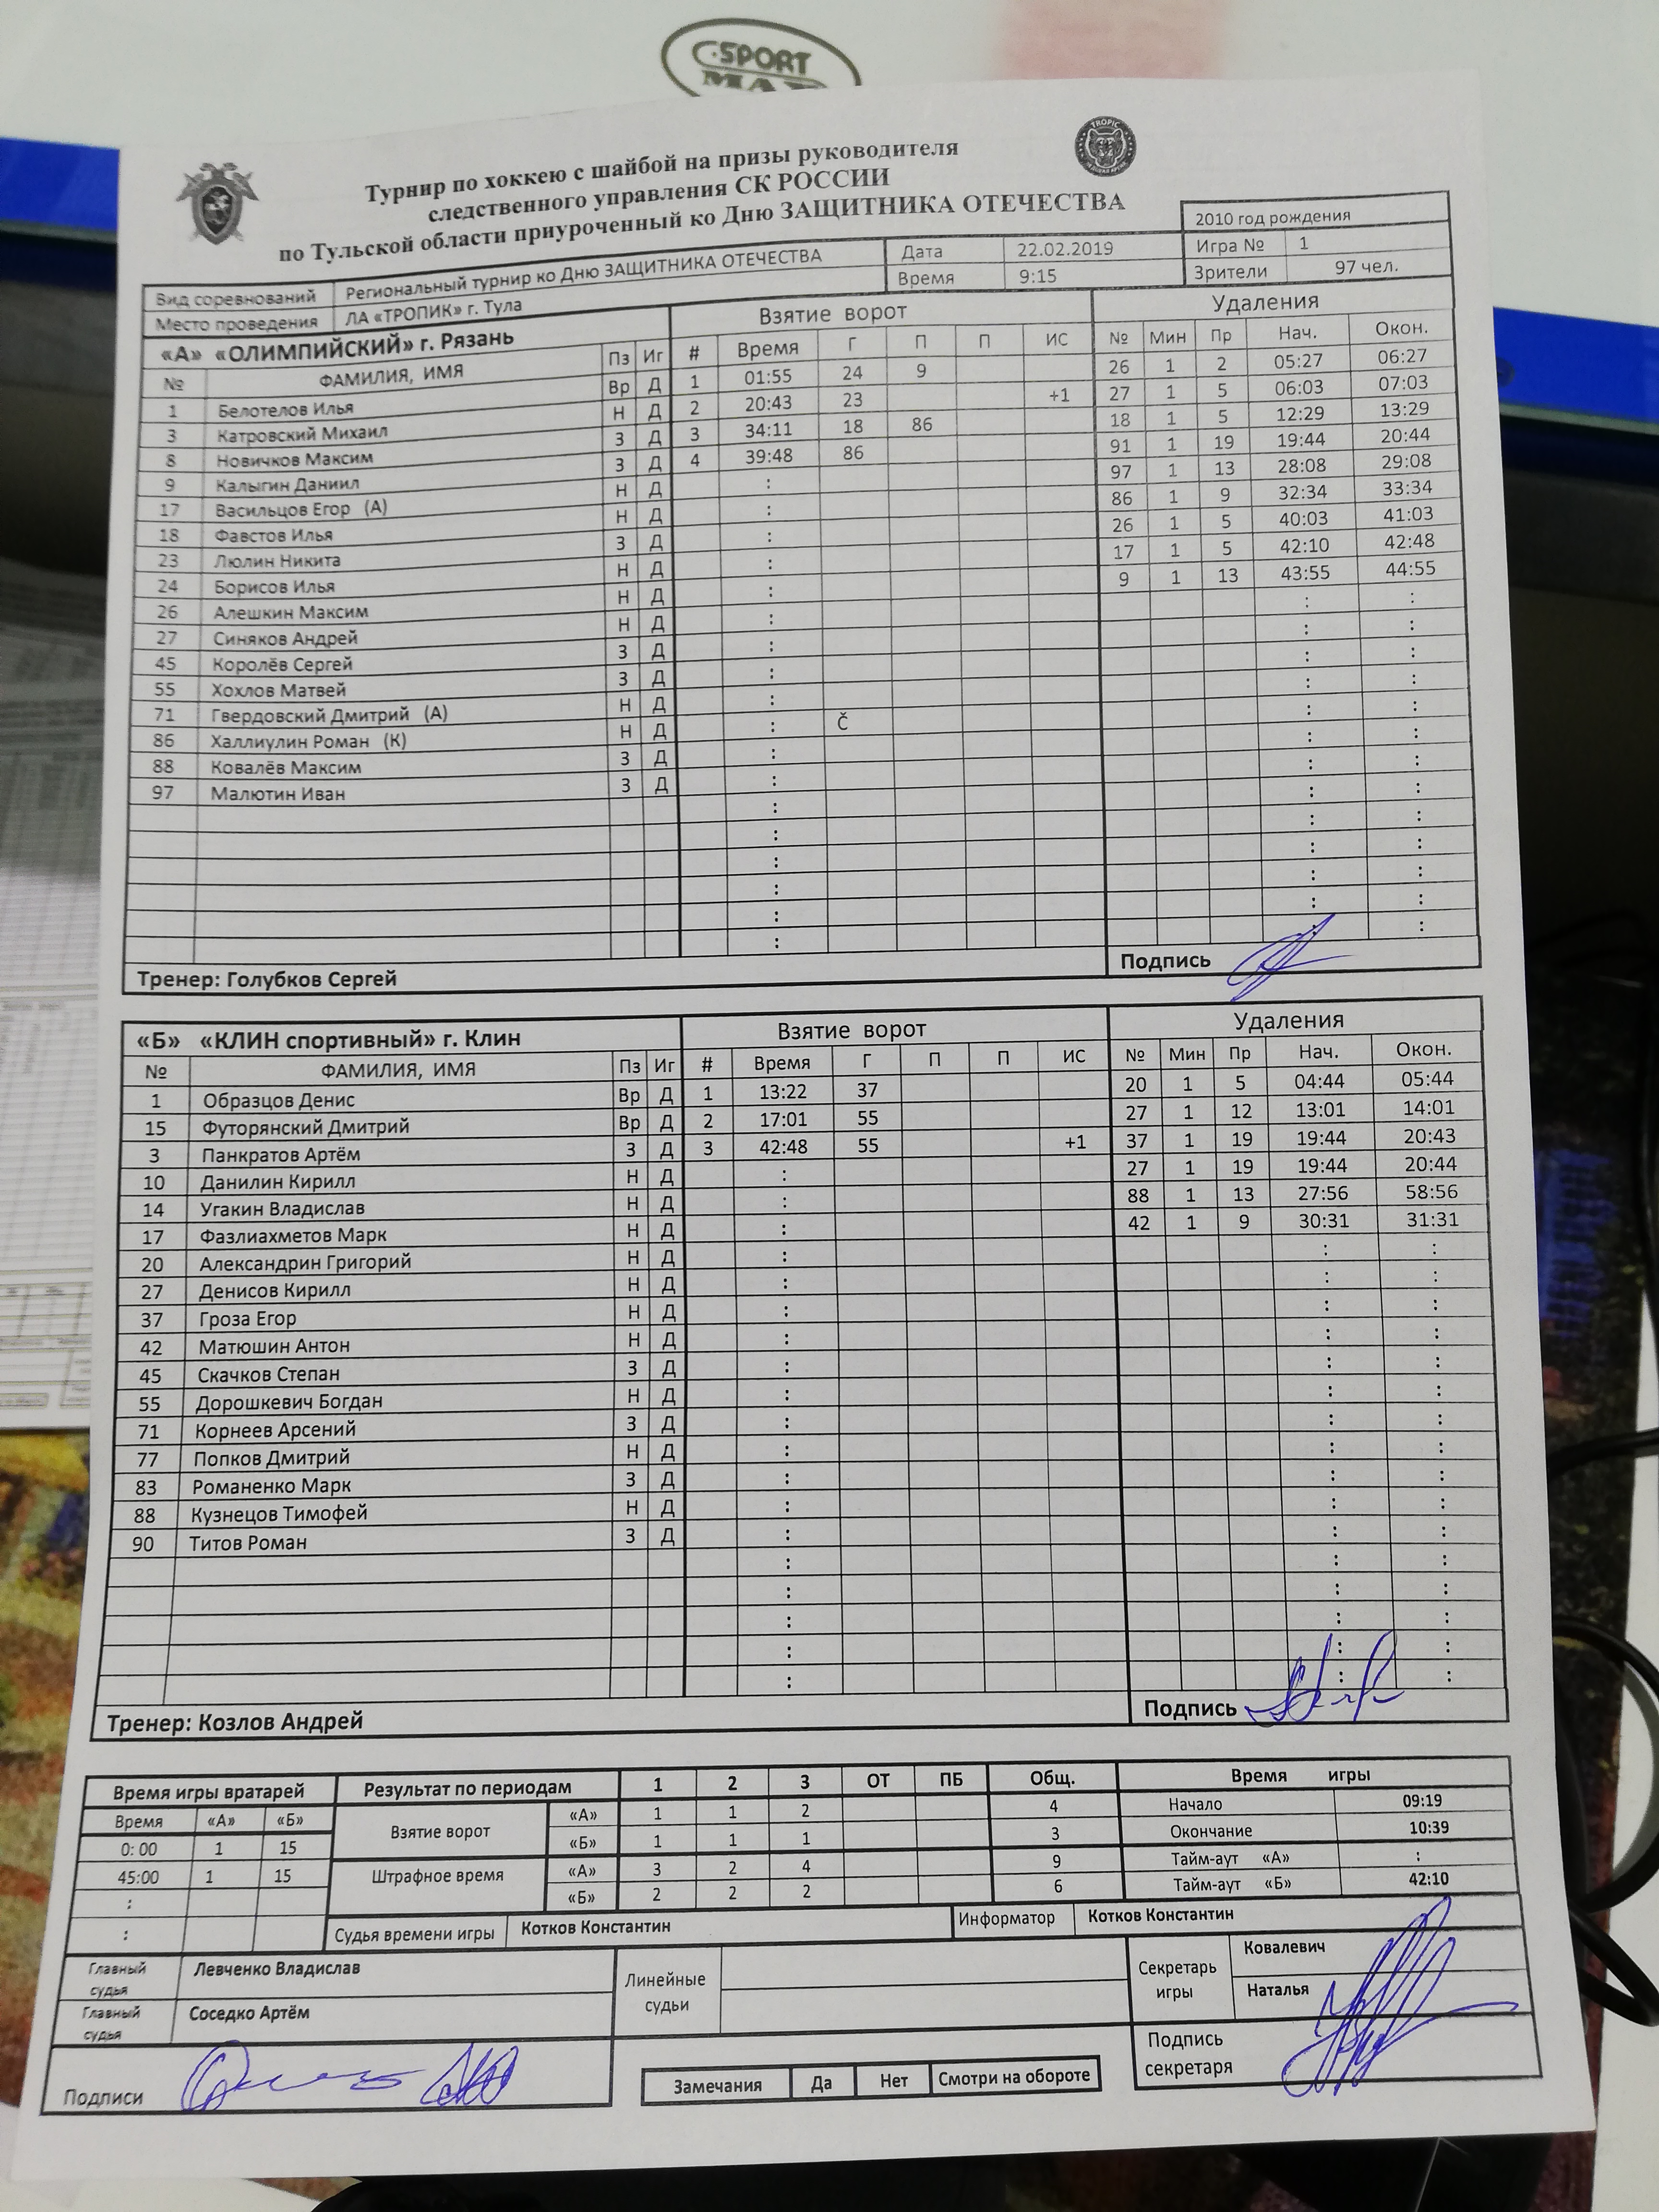 SPORT
Турнир по хоккею с шайбой на призы руководителя
следственного управления СК РОССИИ
по Тульской области приуроченный ко Дню ЗАЩИТНИКА ОТЕЧЕСТВА
TROPIC
2010 год рождения
Вид соревнований Региональный турнир ко Дню ЗАЩИТНИКА ОТЕЧЕСТВА Дата 22.02.2019 Игра № 1
Место проведения ЛА «ТРОПИК» г. Тула Время 9:15 Зрители 97 чел.
«А» «ОЛИМПИЙСКИЙ» г. Рязань Взятие ворот Удаления
№ ФАМИЛИЯ, ИМЯ Пз Иг # Время Г П П ИС № Мин Пр Нач. Окон.
1 Белотелов Илья Вр Д 1 01:55 24 9 26 1 2 05:27 06:27
3 Катровский Михаил Н Д 2 20:43 23 +1 27 1 5 06:03 07:03
8 Новичков Максим З Д 3 34:11 18 86 18 1 5 12:29 13:29
9 Калыгин Даниил З Д 4 39:48 86 91 1 19 19:44 20:44
17 Васильцов Егор (А) Н Д : 97 1 13 28:08 29:08
18 Фавстов Илья Н Д : 86 1 9 32:34 33:34
23 Люлин Никита З Д : 26 1 5 40:03 41:03
24 Борисов Илья Н Д : 17 1 5 42:10 42:48
26 Алешкин Максим Н Д : 9 1 13 43:55 44:55
27 Синяков Андрей Н Д : : :
45 Королёв Сергей З Д : : :
55 Хохлов Матвей З Д : : :
71 Гвердовский Дмитрий (А) Н Д : : :
86 Халлиулин Роман (К) Н Д : Č : :
88 Ковалёв Максим З Д : : :
97 Малютин Иван З Д : : :
: : :
: : :
: : :
: : :
: : :
: : :
Тренер: Голубков Сергей Подпись
«Б» «КЛИН спортивный» г. Клин Взятие ворот Удаления
№ ФАМИЛИЯ, ИМЯ Пз Иг # Время Г П П ИС № Мин Пр Нач. Окон.
1 Образцов Денис Вр Д 1 13:22 37 20 1 5 04:44 05:44
15 Футорянский Дмитрий Вр Д 2 17:01 55 27 1 12 13:01 14:01
3 Панкратов Артём З Д 3 42:48 55 +1 37 1 19 19:44 20:43
10 Данилин Кирилл Н Д : 27 1 19 19:44 20:44
14 Угакин Владислав Н Д : 88 1 13 27:56 58:56
17 Фазлиахметов Марк Н Д : 42 1 9 30:31 31:31
20 Александрин Григорий Н Д : : :
27 Денисов Кирилл Н Д : : :
37 Гроза Егор Н Д : : :
42 Матюшин Антон Н Д : : :
45 Скачков Степан З Д : : :
55 Дорошкевич Богдан Н Д : : :
71 Корнеев Арсений З Д : : :
77 Попков Дмитрий Н Д : : :
83 Романенко Марк З Д : : :
88 Кузнецов Тимофей Н Д : : :
90 Титов Роман З Д : : :
: : :
: : :
: : :
: : :
: : :
Тренер: Козлов Андрей Подпись
Время игры вратарей Результат по периодам 1 2 3 ОТ ПБ Общ. Время игры
Время «А» «Б» Взятие ворот «А» 1 1 2 4 Начало 09:19
0: 00 1 15 «Б» 1 1 1 3 Окончание 10:39
45:00 1 15 Штрафное время «А» 3 2 4 9 Тайм-аут «А» :
: «Б» 2 2 2 6 Тайм-аут «Б» 42:10
: Судья времени игры Котков Константин Информатор Котков Константин
Главный судья Левченко Владислав Линейные судьи Секретарь игры Ковалевич Наталья
Главный судья Соседко Артём
Подписи Замечания Да Нет Смотри на обороте Подпись секретаря